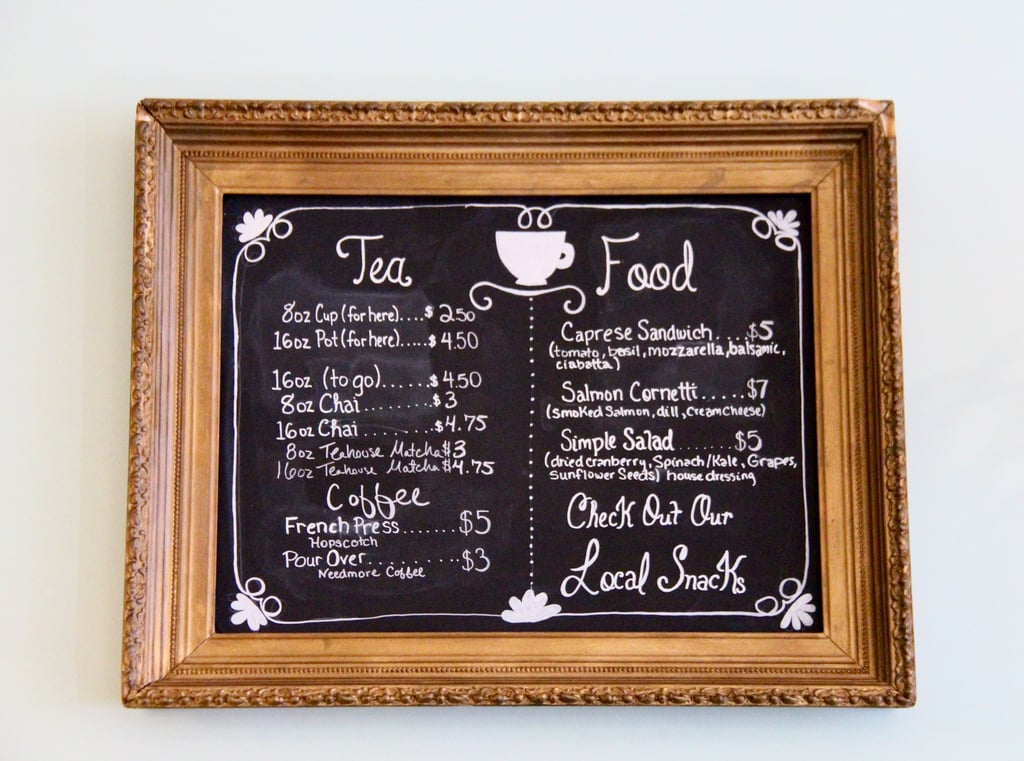 Tea
8oz Cup (for here)....$ 2.50
16oz Pot (for here).....$ 4.50
16oz (to go)......$ 4.50
8oz Chai.........$ 3
16oz Chai..........$4.75
8oz Teahouse Matcha $3
16oz Teahouse Matcha $4.75
Coffee
French Press.......$5
Hopscotch
Pour Over..........$3
Needmore Coffee
Food
Caprese Sandwich....$5
(tomato, besil, mozzarella, balsamic,
ciabatta)
Salmon Cornetti.....$7
(smoked Salmon, dill, cream cheese)
Simple Salad.......$5
(dried cranberry, Spinach/Kale, Grapes,
Sunflower Seeds) house dressing
Check Out Our
Local Snacks